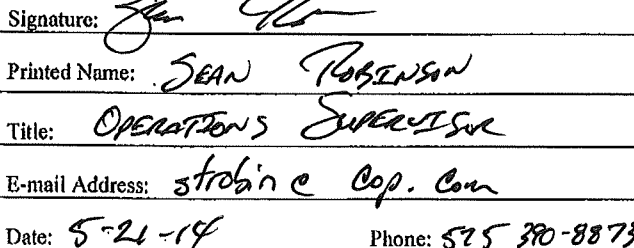 Signature:
Printed Name: SEAN ROBINSON
Title: OPERATIONS SUPERVISOR
E-mail Address: strobin@cop.com
Date: 5-21-14 Phone: 575 390-8873